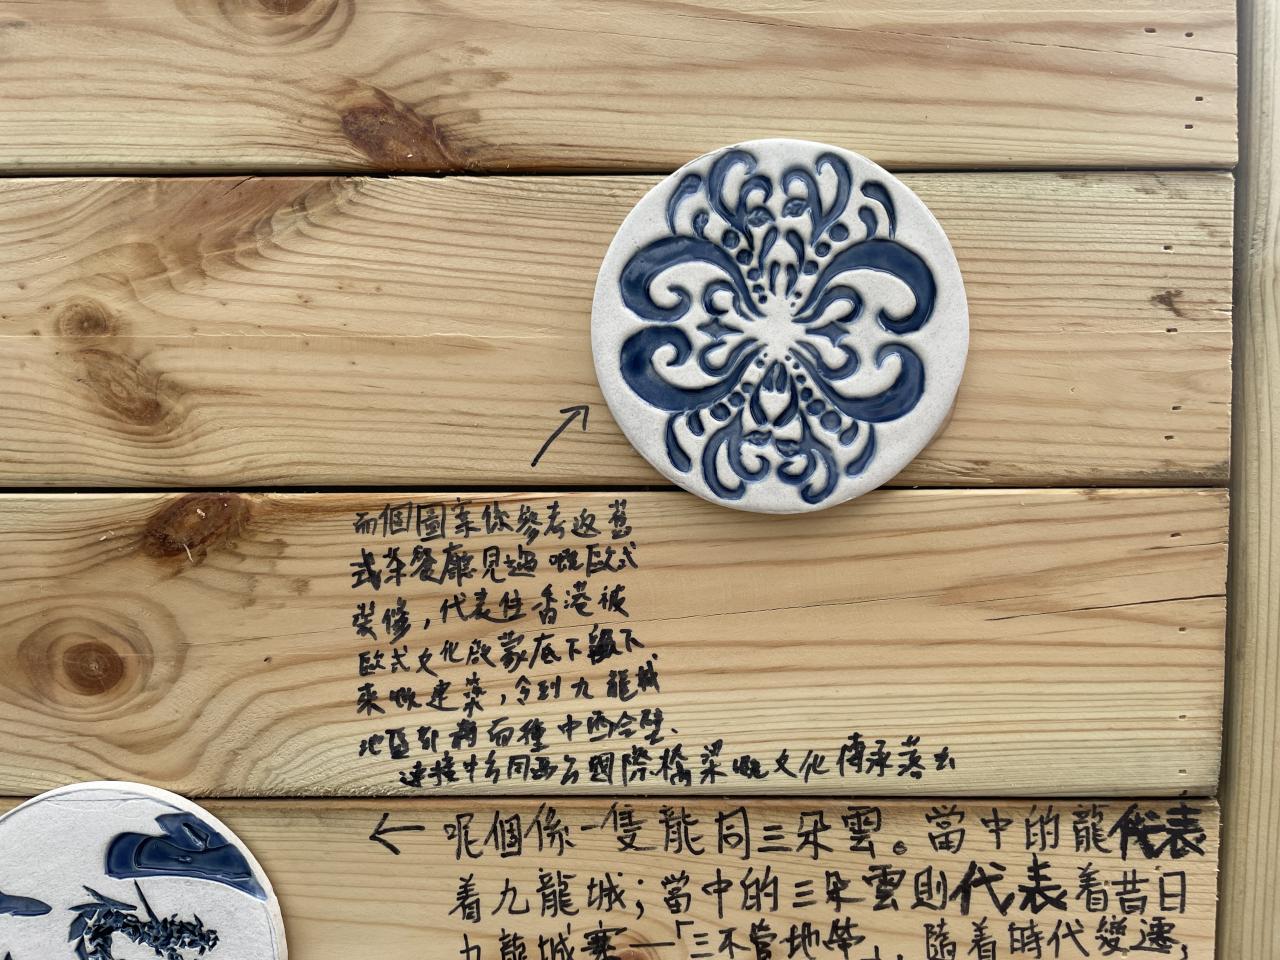 而個圖案係參考返舊
式茶餐廳見過嘅歐式
裝修，代表住香港被
歐式文化啟蒙底下留下
來嘅建築，令到九龍城
地區都有而種中西合璧、
連接中方同西方國際橋梁嘅文化傳承落去
呢個係一隻龍同三朵雲。當中的龍代表
着九龍城；當中的三朵雲則代表着昔日
九龍城寨—「三不管地帶」，隨着時代變遷，